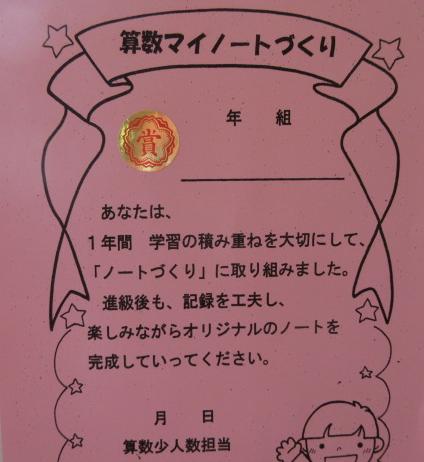 算数マイノートづくり
年　組
賞
あなたは、
１年間　学習の積み重ねを大切にして、
「ノートづくり」に取り組みました。
進級後も、記録を工夫し、
楽しみながらオリジナルのノートを
完成していってください。
月　日
算数少人数担当